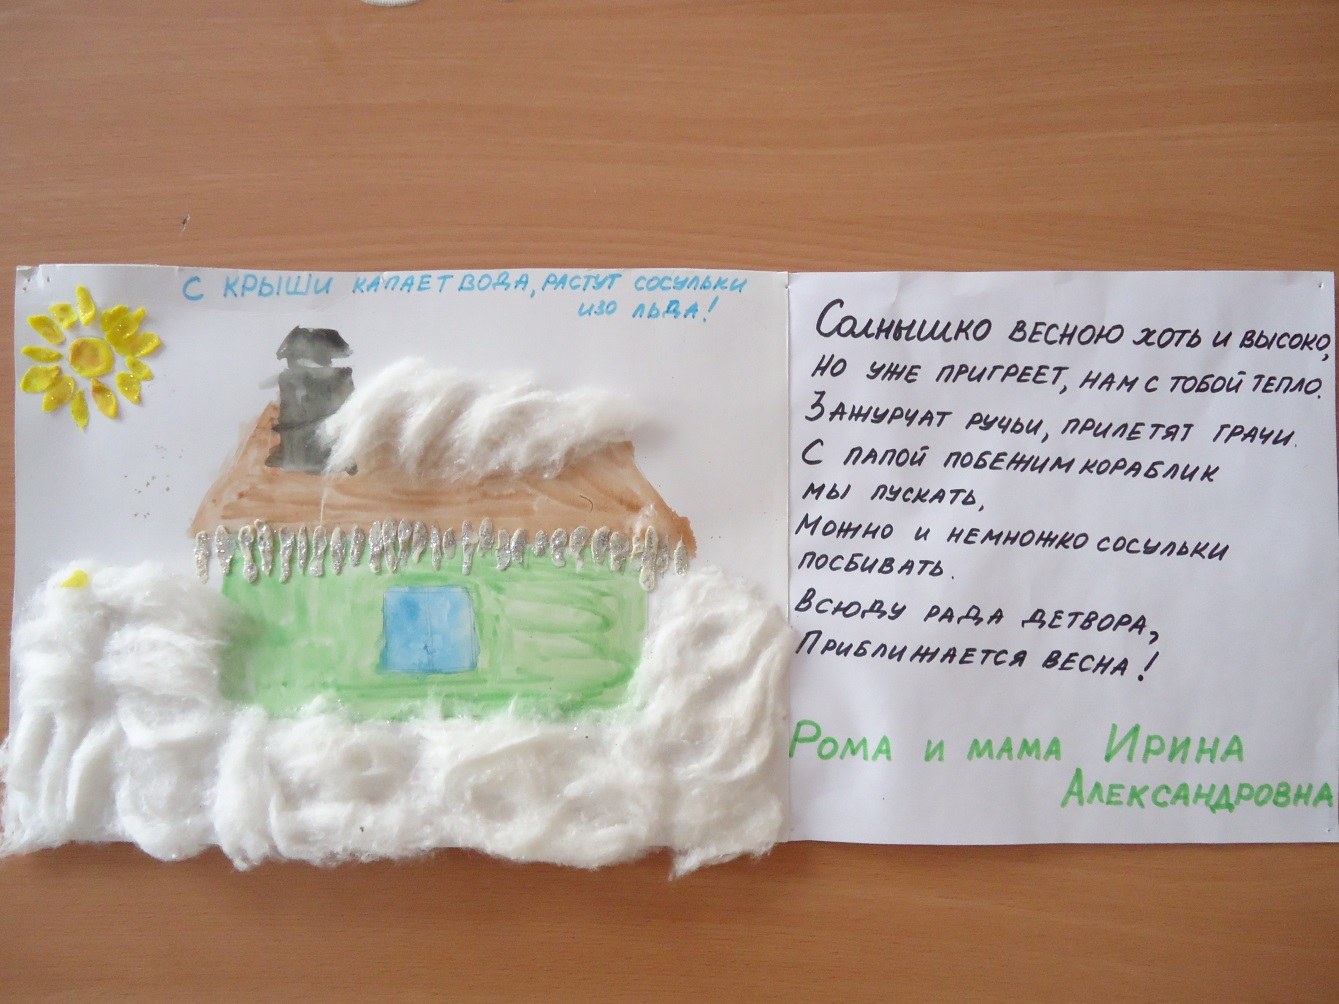 С КРЫШИ КАПАЕТ ВОДА, РАСТУТ СОСУЛЬКИ
ИЗО ЛЬДА!
Солнышко весною хоть и высоко,
Но уже пригреет, нам с тобой тепло.
Зажурчат ручьи, прилетят грачи.
С папой побежим кораблик
мы пускать,
Можно и немножко сосульки
посбивать.
Всюду рада детвора,
Приближается весна!
Рома и мама Ирина
Александровна